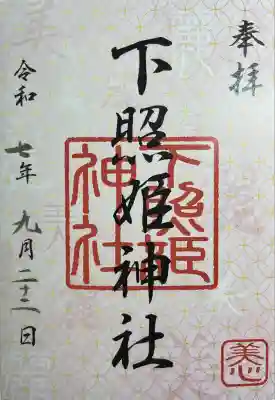 奉拝
下照姫神社
令和七年九月二十二日
下照姫
神社
美心